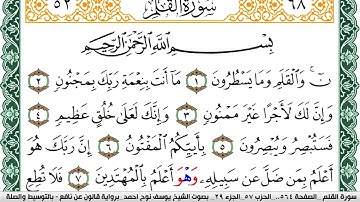 ٥٢ سُورَةُ القَلَمِ ٦٨
بِسْمِ اللَّهِ الرَّحْمَٰنِ الرَّحِيمِ
نٓۚ وَالْقَلَمِ وَمَا يَسْطُرُونَ ١ مَا أَنتَ بِنِعْمَةِ رَبِّكَ بِمَجْنُونٍ ٢
وَإِنَّ لَكَ لَأَجْرًا غَيْرَ مَمْنُونٍ ٣ وَإِنَّكَ لَعَلَىٰ خُلُقٍ عَظِيمٍ ٤
فَسَتُبْصِرُ وَيُبْصِرُونَ ٥ بِأَييِّكُمُ الْمَفْتُونُ ٦ إِنَّ رَبَّكَ هُوَ
أَعْلَمُ بِمَن ضَلَّ عَن سَبِيلِهِ وَهْوَ أَعْلَمُ بِالْمُهْتَدِينَ ٧ فَلَا تُطِعِ
سورة القلم . الصفحة ٥٦٤. الحزب ٥٧ .الجزء ٢٩ . بصوت الشيخ يوسف نوح احمد .برواية قالون عن نافع - بالتوسيط والصلة